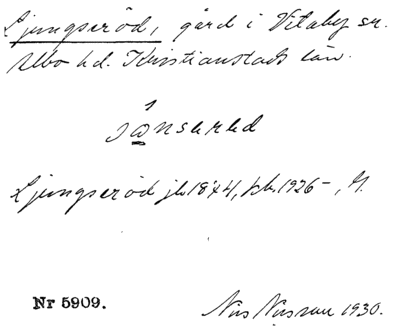 Ljungseröd, gård i Vitaby sn.
Albo hd. Kristianstads län.
Ljungseröd jb. 1874, pk. 1926 –, M.
Nr 5909.
Nils Nilsson 1930.